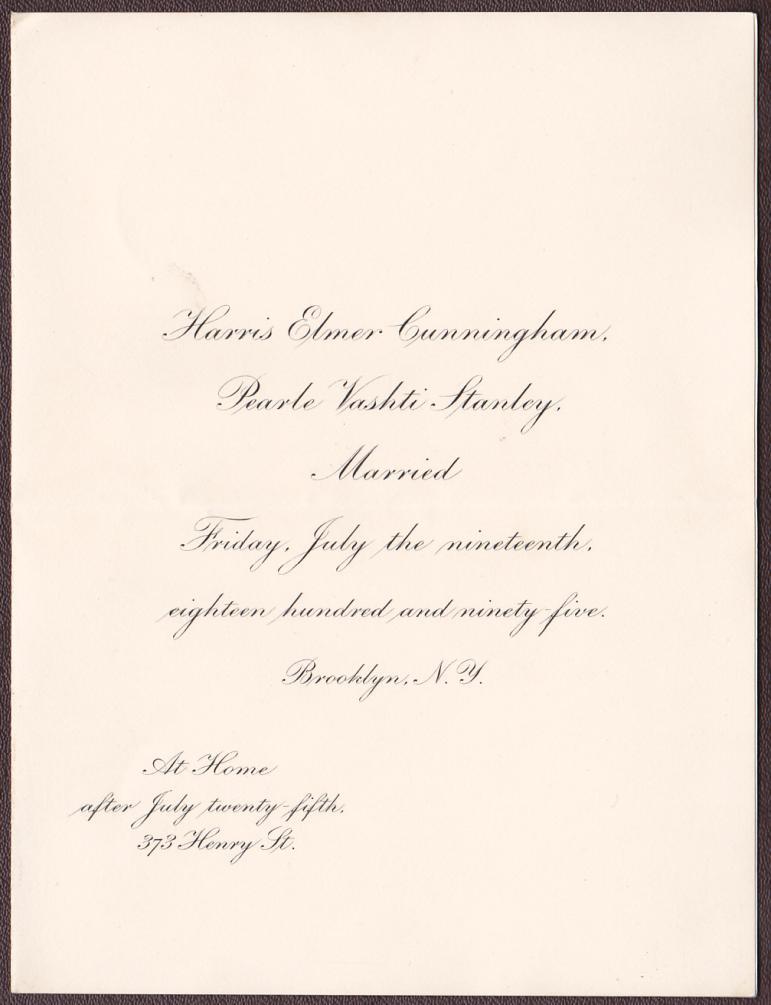 Harris Elmer Cunningham,
Pearle Vashti Stanley,
Married
Friday, July the nineteenth,
eighteen hundred and ninety-five.
Brooklyn, N. Y.
At Home
after July twenty-fifth.
373 Henry St.